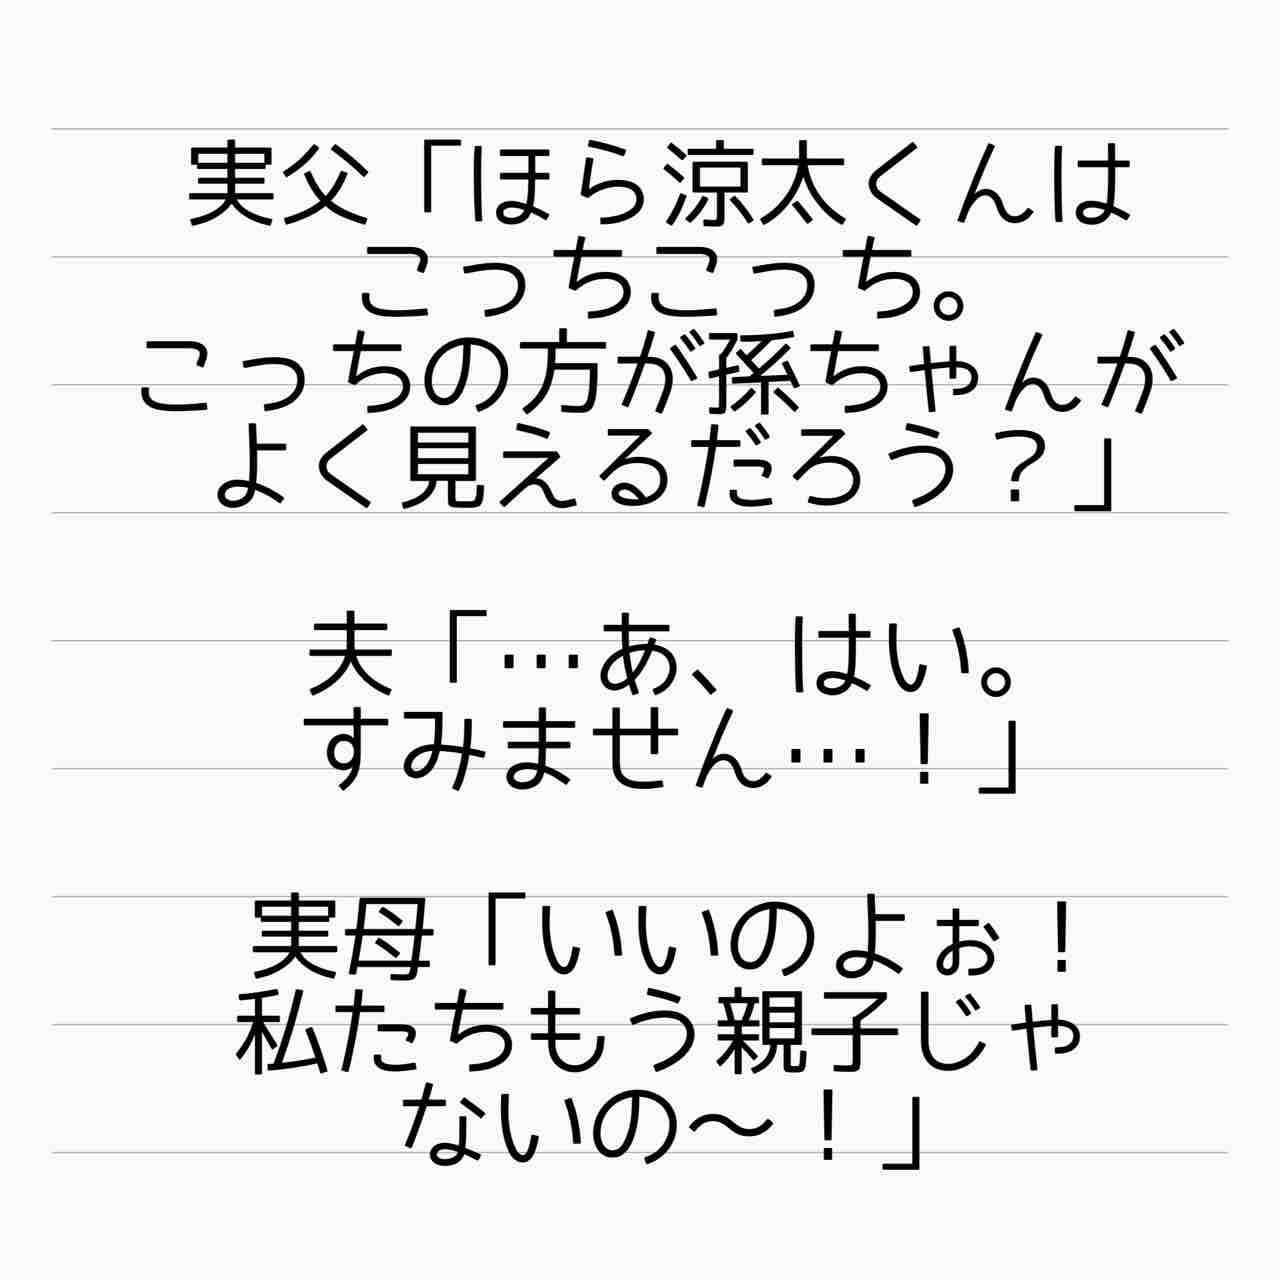 実父「ほら涼太くんは
こっちこっち。
こっちの方が孫ちゃんが
よく見えるだろう？」
夫「…あ、はい。
すみません…！」
実母「いいのよぉ！
私たちもう親子じゃ
ないの〜！」